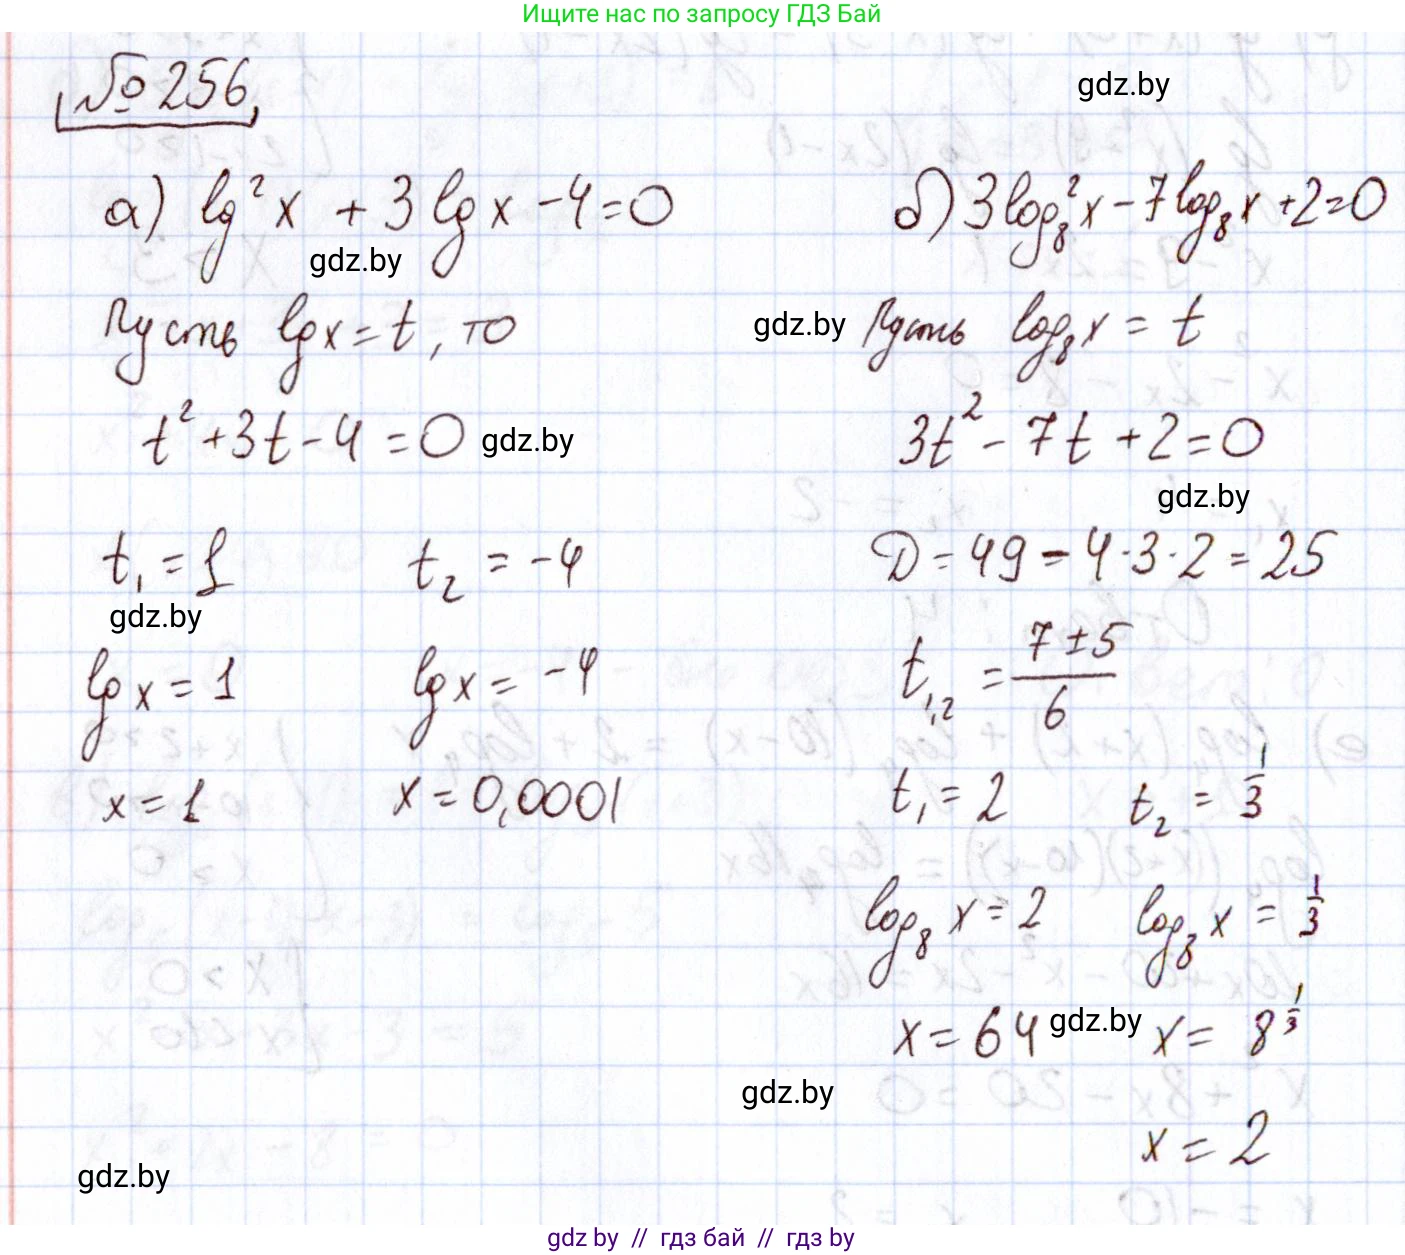 Ищите нас по запросу ГДЗ Бай
№ 256
gdz.by
а) lg²x + 3lgx - 4 = 0
gdz.by
Пусть lgx = t, то
t² + 3t - 4 = 0 gdz.by
t₁ = 1 t₂ = -4
gdz.by
lgx = 1 lgx = -4
x = 1 x = 0,0001
б) 3log₈²x - 7log₈x + 2 = 0
gdz.by Пусть log₈x = t
3t² - 7t + 2 = 0
gdz.by
D = 49 - 4·3·2 = 25
t₁,₂ = (7 ± 5)/6
t₁ = 2 t₂ = 1/3
log₈x = 2 log₈x = 1/3
x = 64 gdz.by x = 8^(1/3)
gdz.by
x = 2
gdz.by
gdz by // гдз бай // gdz by